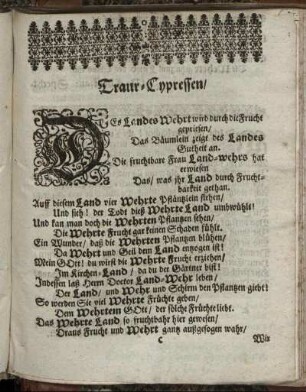 Traur-Cypressen/
DEs Landes Wehrt wird durch die Frucht
gepriesen/
Das Bäumlein zeigt des Landes
Gutheit an.
Die fruchtbare Frau Land-wehrs hat
erwiesen
Das/ was ihr Land durch Frucht-
barkeit gethan.
Auff diesem Land vier Wehrte Pfläntzlein stehen/
Und sieh! der Todt dieß Wehrte Land umbwühlt!
Und kan man doch die Wehrten Pflantzen sehen/
Die Wehrte Frucht gar keinen Schaden fühlt.
Ein Wunder/ daß die Wehrten Pflantzen blühen/
Da Wehrt und Geil dem Land entzogen ist!
Mein GOtt! du wirst die Wehrte Frucht erziehen/
Im Kirchen-Land/ da du der Gärtner bist!
Indessen laß Herrn Doctor Land-Wehr leben/
Der Land/ und Wehr und Schirm den Pflantzen giebt!
So werden Sie viel Wehrte Früchte geben/
Dem Wehrtem GOtt/ der solche Früchte liebt.
Das Wehrte Land so fruchtbahr hier gewesen/
Draus Frucht und Wehrt gantz außgesogen wahr/
C
Wir